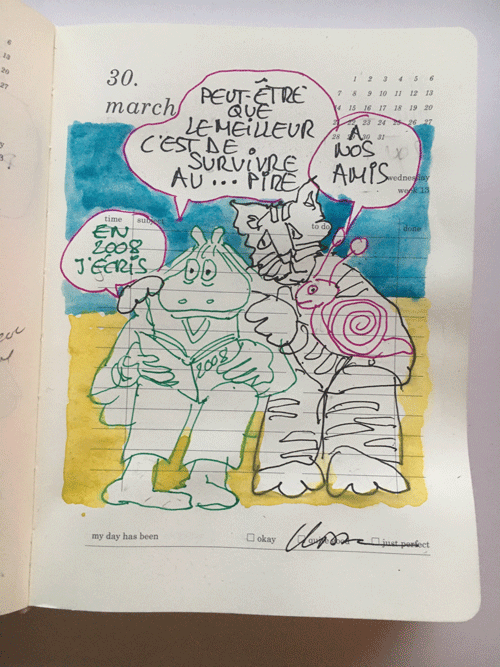 30.
march
1 2 3 4 5 6
7 8 9 10 11 12 13
14 15 16 17 18 19 20
21 22 23 24 25 26 27
28 29 30 31
wednesday
week 13
PEUT-ÊTRE
QUE
LE MEILLEUR
C'EST DE
SURVIVRE
AU ... PIRE
A
NOS
AMIS
time subject to do done
EN
2008
J'ÉCRIS
2008
my day has been okay quite good just perfect